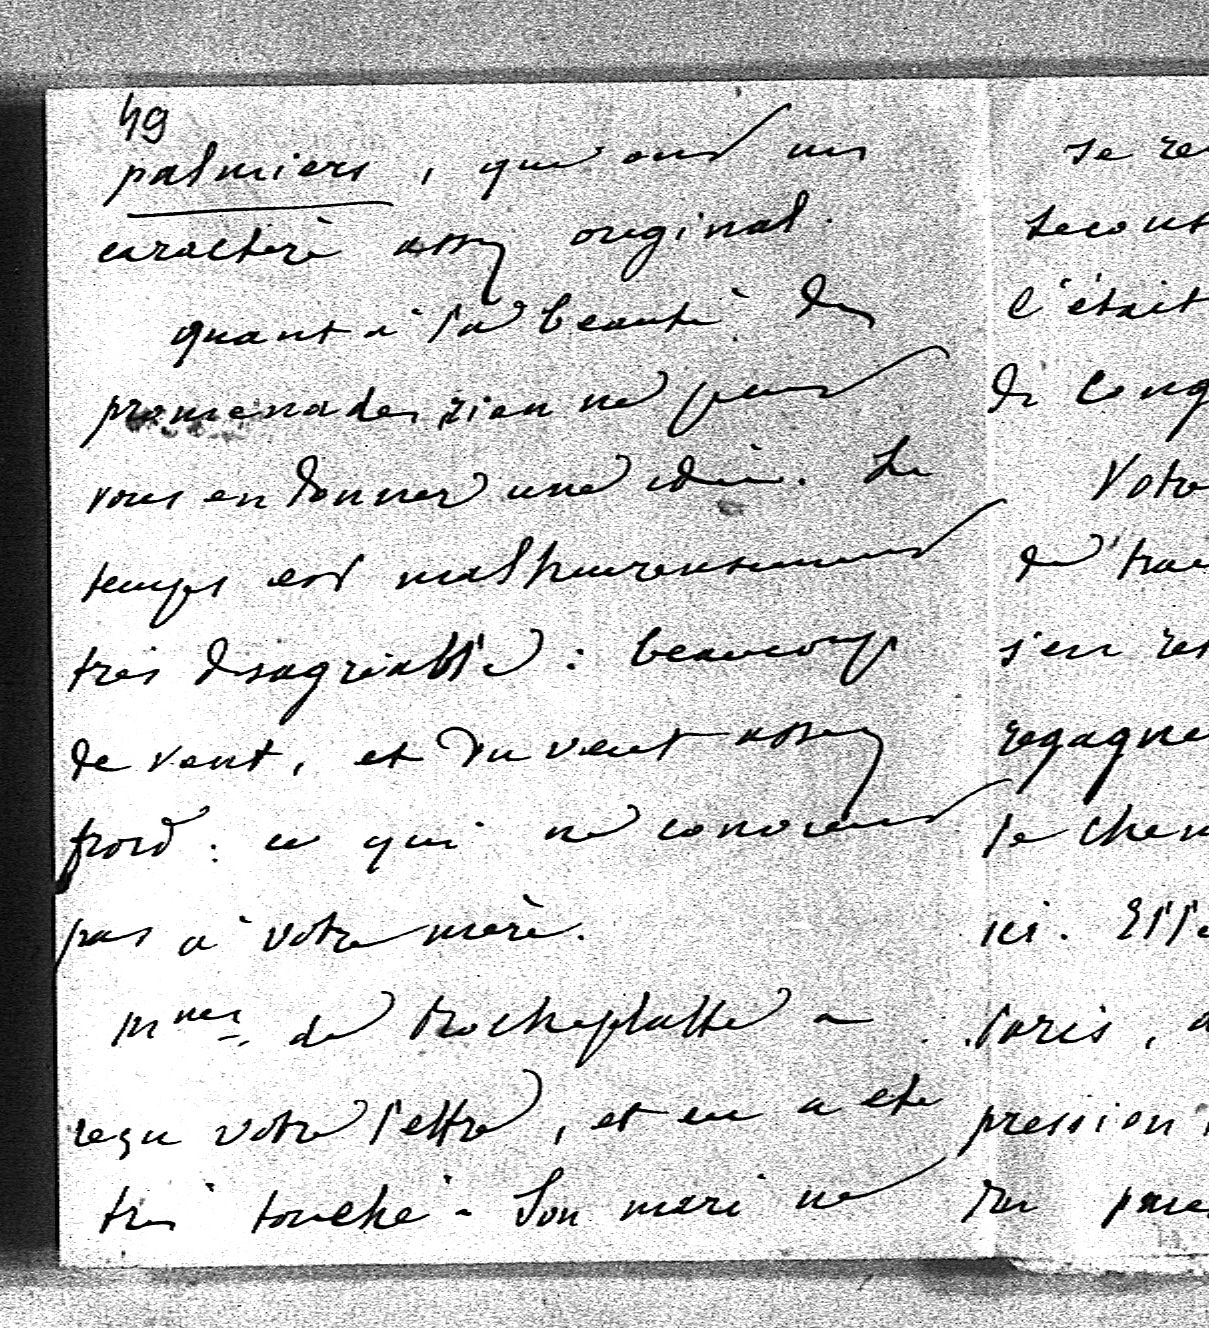 49
palmiers, qui ont un
caractère assez original.
quant à la beauté des
promenades, rien ne peut
vous en donner une idée. Le
temps est malheureusement
très désagréable : beaucoup
de vent, et du vent assez
froid : ce qui ne convient
pas à votre mère.
Mmes de Rocheplatte a
reçu votre lettre, et en a été
très touché. Son mari ne
se re
secous
l'était
di cong
Votre
de trai
s'en res
regagne
le chem
ici. Elle
Paris, a
pression